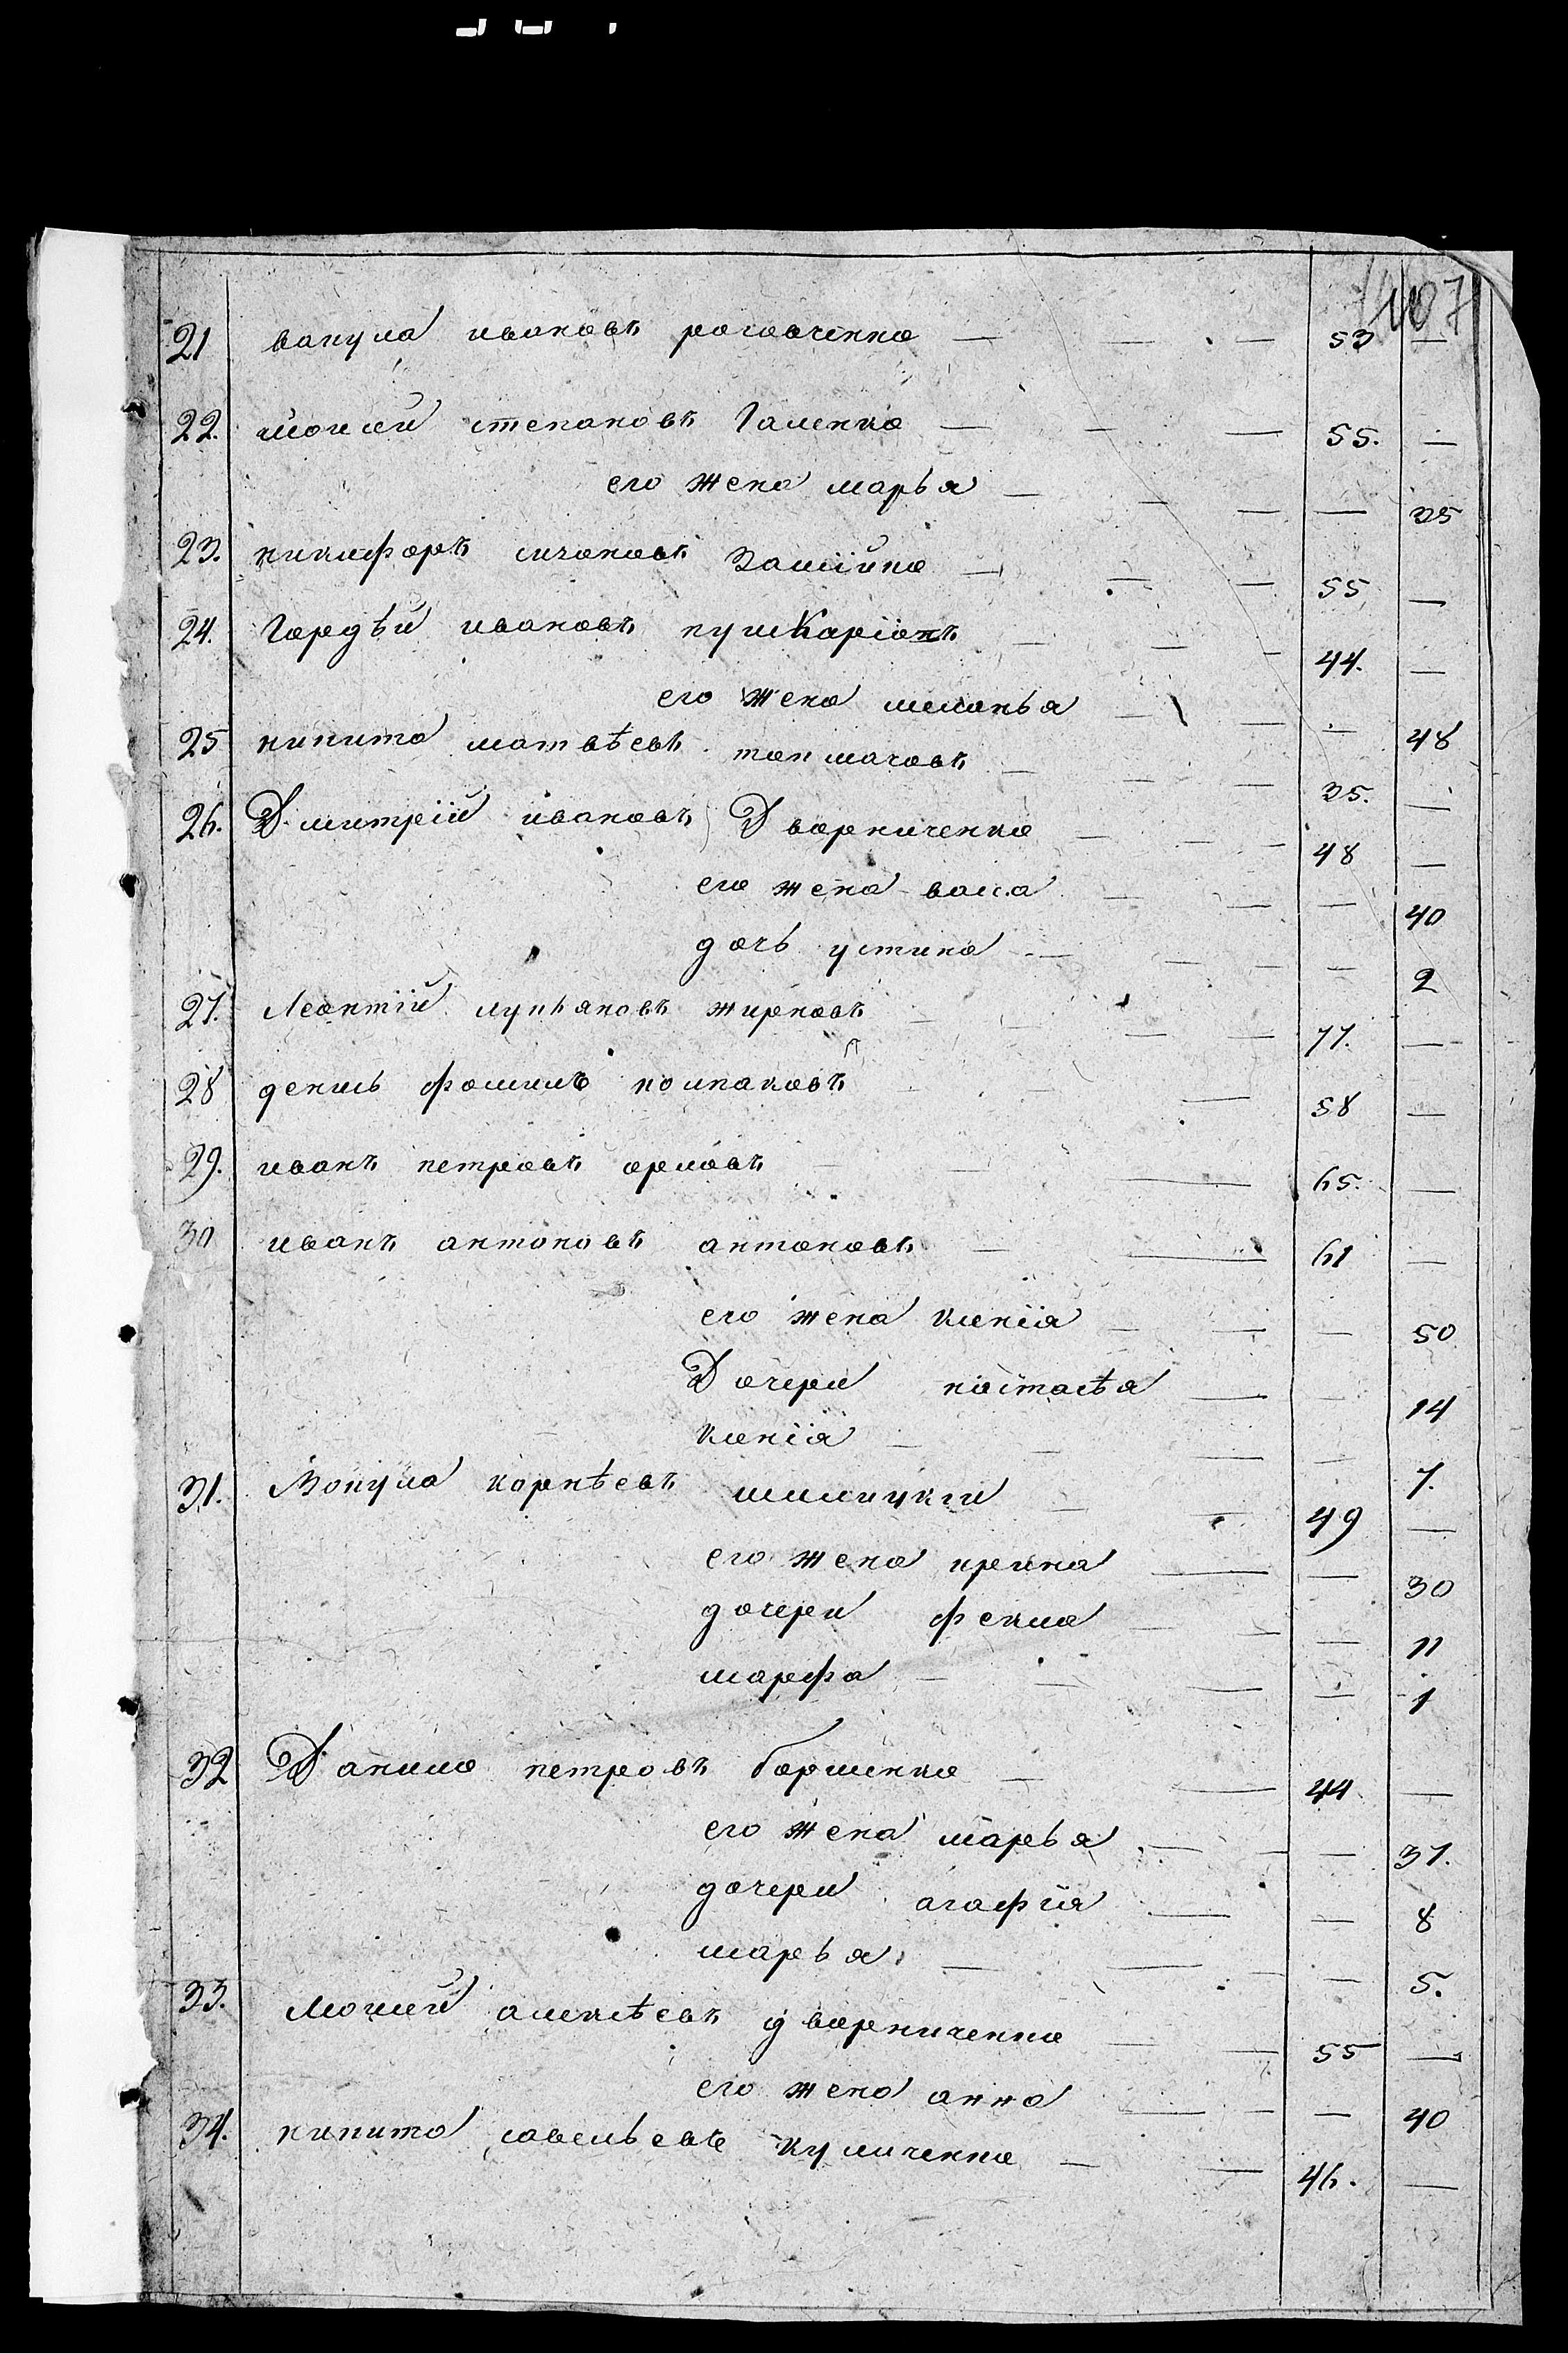 107
21 вакула ивановъ роговченко — — — 53 —
22. мосией степановъ Галенко — — — 55. —
его жена марья — — — — 35
23. никифоръ ивановъ — — — 55 —
24. Гордѣй ивановъ пушкаріовъ — — — 44. —
его жена меланья — — — 48
25 никита матвѣевъ толмачовъ — — — 35. —
26. Дмитрій ивановъ Дворниченко — — — 48 —
его жена васса — — — 40
дочь устина — — — — 2
27. Леонтій лукьяновъ жирновъ — — — 77. —
28 денисъ фоминъ колпаковъ — 58 —
29. иванъ петровъ орловъ — — 65. —
30 иванъ антоновъ антоновъ — — 61 —
его жена ксенія — — — 50
Дочери настасья — — 14
ксенія — — — — 7.
31. Вакула корнѣевъ — — 49 —
его жена ирина — — 30
дочери фекла — — — 11
марфа — — — — 1
32 Данило петровъ борщенко — — 44 —
его жена марья — — — 37.
дочери агафія — — 8
марья — — — — 5.
33. Мосией алексѣевъ дворниченко — — 55 —
его жена анна — — — 40
34. никита савельевъ куличенко — — 46. —